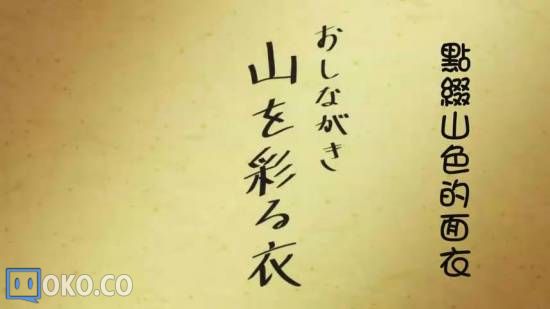 點綴山色的面衣
おしながき
山を彩る衣
MOKO.CO